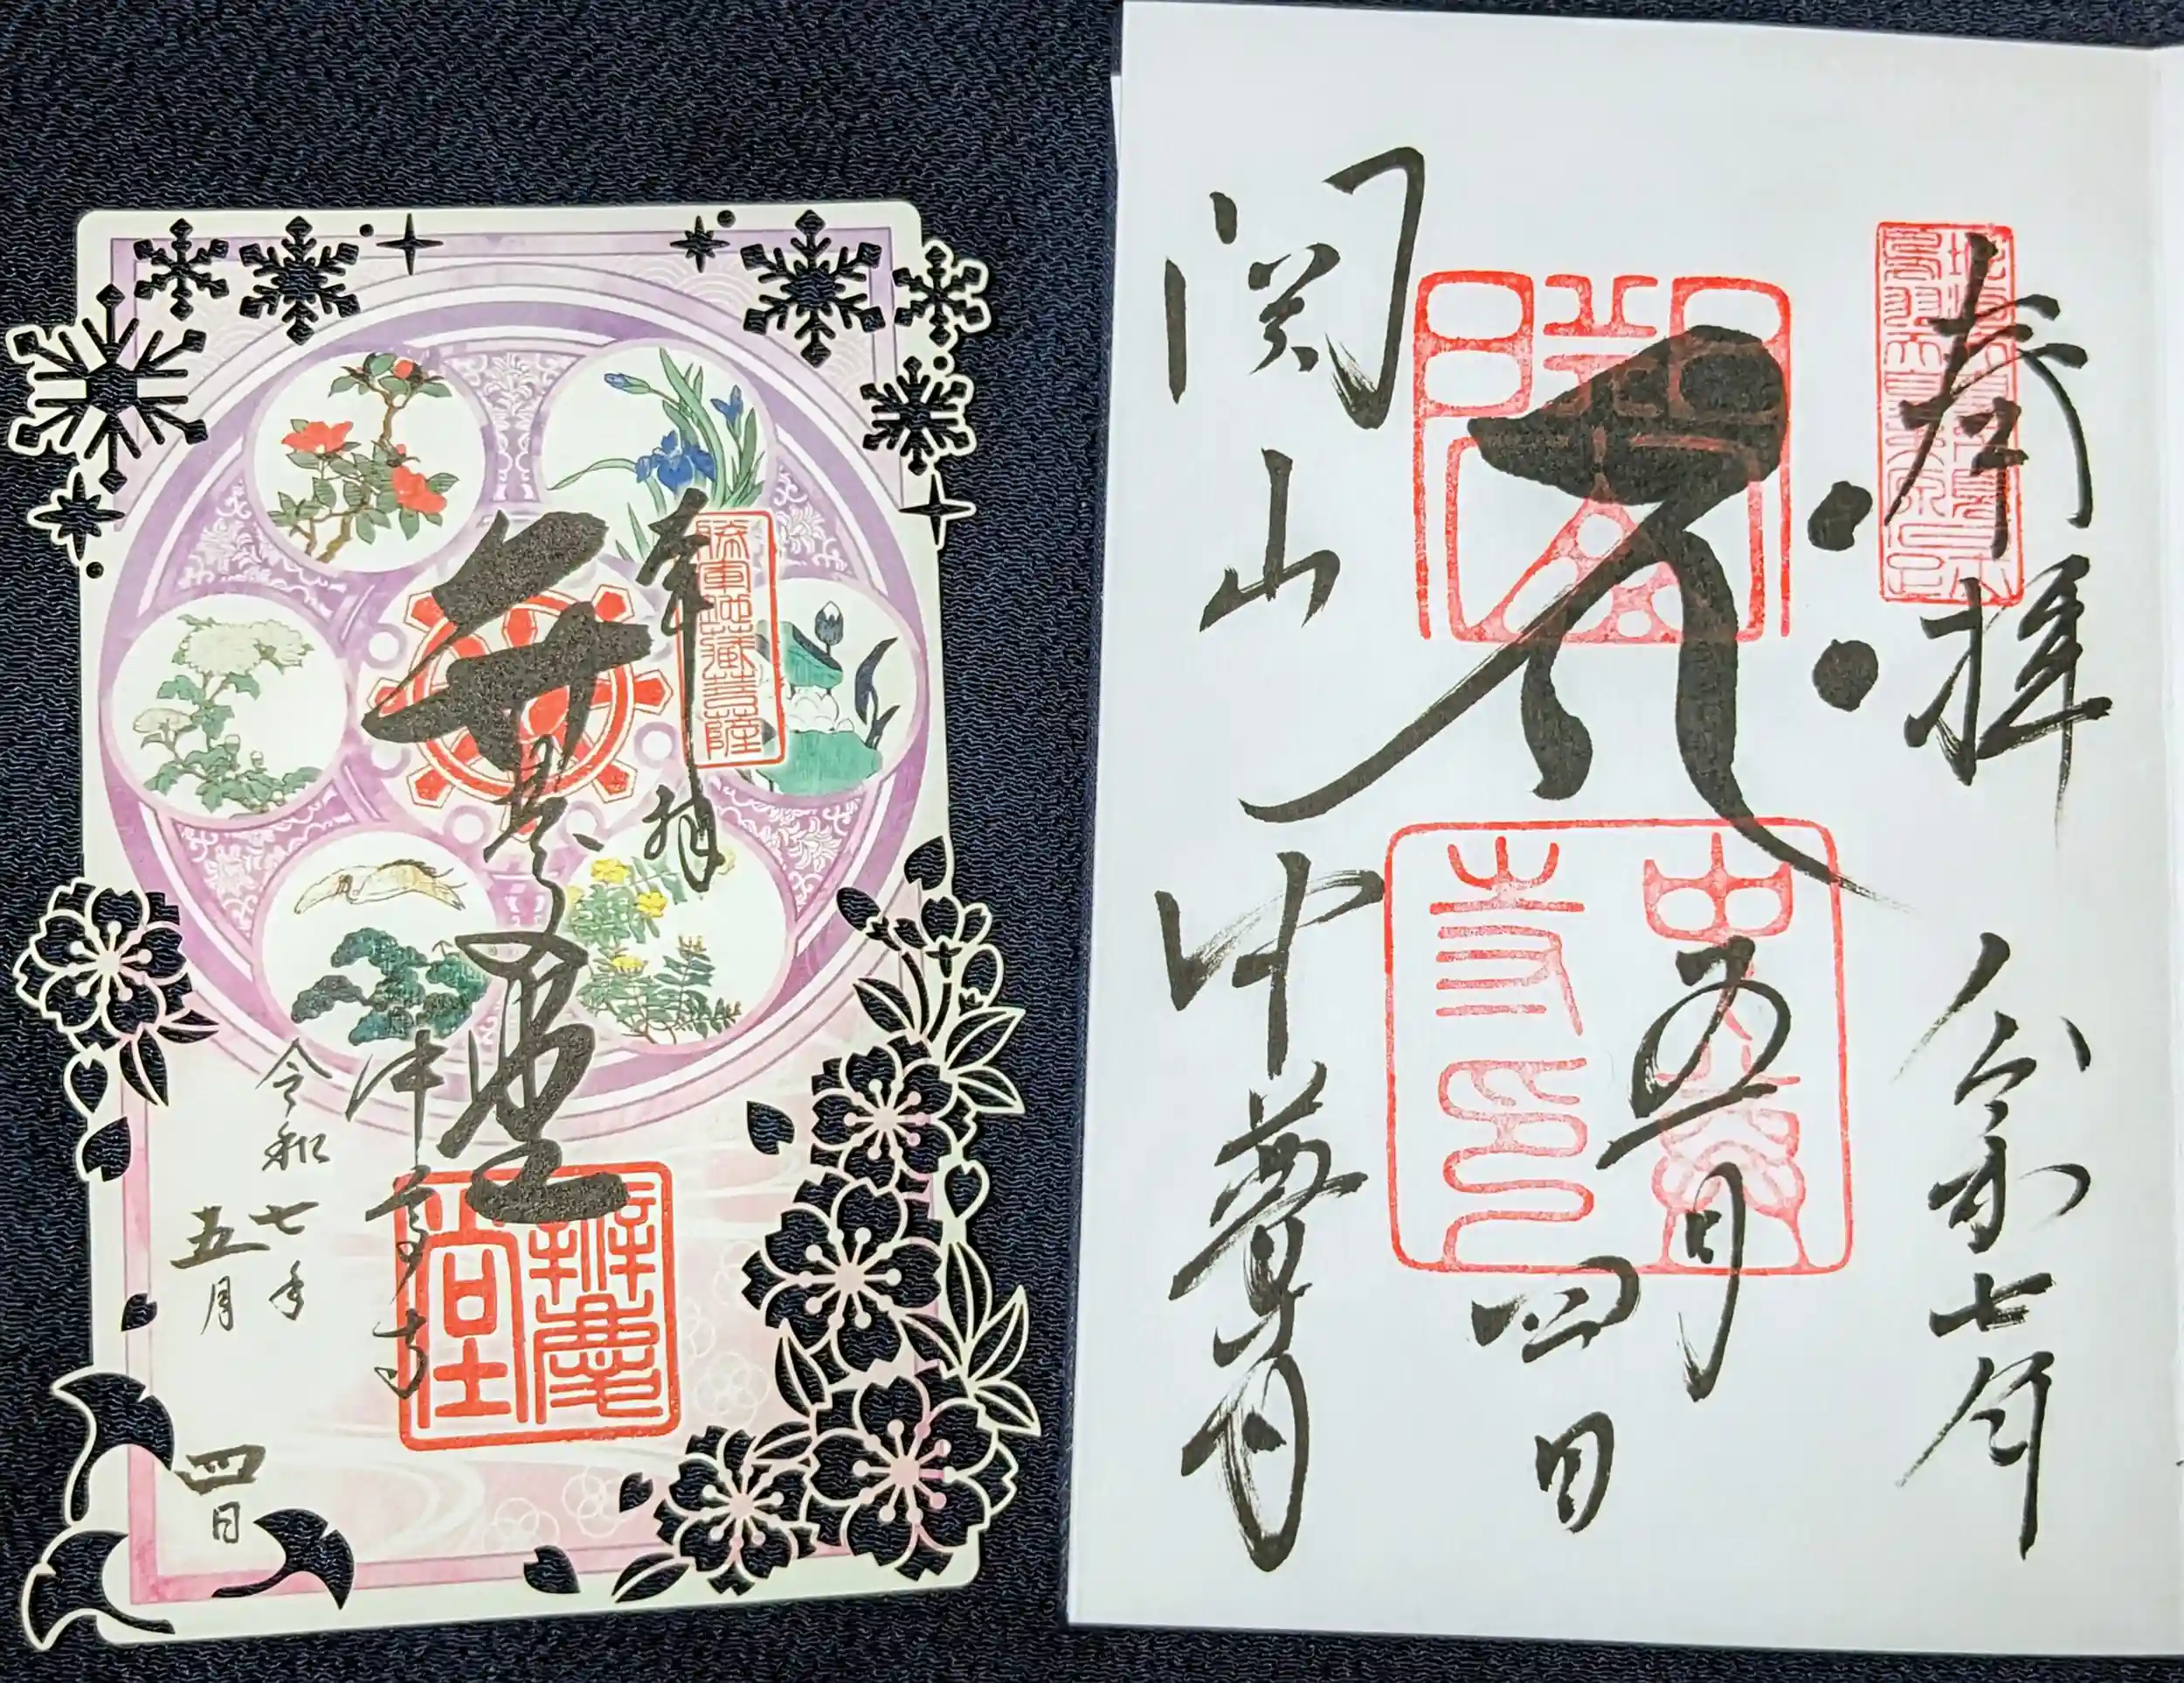 奉拝
勝軍地蔵菩薩
辨慶堂
中尊寺
令和七年
五月
四日
奉拝
令和七年
五月
四日
中尊寺印
関山中尊寺